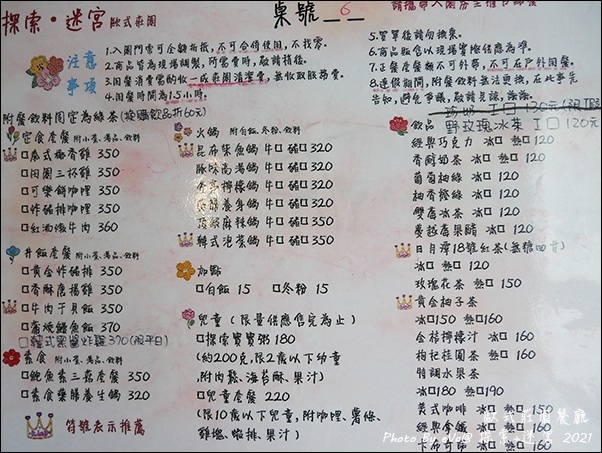 探索·迷宮 歐式莊園
桌號 6
請攜帶入園券至櫃台點餐
注意事項
1.入園門票可全額折抵,不可合併使用,不找零。
2.商品皆為現場調製,所需費時,敬請稍後。
3.因餐消費需酌收一成莊園清潔費,無收取服務費。
4.用餐時間為1.5小時。
5.買單後請勿換桌。
6.商品販售以現場實際供應為準。
7.正餐套餐類不可外帶,不可在戶外用餐。
8.連假期間,附餐飲料無法更換,在此事先
告知,避免爭議,敬請見諒,謝謝。
附餐飲料固定為綠茶(換購飲品折60元)
定食套餐 附小菜、湯品、飲料
□泰式椒香雞 350
□閨閣三杯雞 350
□可樂餅咖哩 350
□炸豬排咖哩 350
□紅酒燉牛肉 360
丼飯套餐 附小菜、湯品、飲料
□黃金炸豬排 350
□香酥唐揚雞 350
□牛肉于貝飯 350
□蒲燒鰻魚飯 370
□韓式果醬炸雞 370(限平日)
素食 附小菜、湯品、飲料
□鮑魚素三菇套餐 350
□素食藥膳養生鍋 320
符號表示推薦
火鍋 附白飯、冬粉、飲料
昆布柴魚鍋 牛□ 豬□ 320
豚味高湯鍋 牛□ 豬□ 320
香茅檸檬鍋 牛□ 豬□ 320
藥膳養身鍋 牛□ 豬□ 320
頂級麻辣鍋 牛□ 豬□ 350
韓式泡菜鍋 牛□ 豬□ 350
加點
□白飯 15 □冬粉 15
兒童(限量供應售完為止)
□探索寶寶粥 180
(約200克,限2歲以下幼童
,附肉鬆、海苔酥、果汁)
□兒童套餐 220
(限10歲以下兒童,附咖哩、薯條、
雞塊、蝦排、果汁)
I□ 120元(限假
飲品 野玫瑰冰茶 I□ 120元
經典巧克力 冰□ 熱□ 120
香醇奶茶 冰□ 熱□ 120
葡萄柚綠 冰□ 120
柚香橙綠 冰□ 120
雙富冰茶 冰□ 120
蔓越莓果醋 冰□ 120
日月潭18號紅茶(無糖回甘)
冰□ 熱□ 120
玫瑰花茶 冰□ 熱□ 150
黃金柚子茶
冰□150 熱□160
金桔檸檬汁 冰□ 熱□ 160
枸杞桂圓茶 冰□ 熱□ 160
特調水果茶
冰□180 熱□190
美式咖啡 冰□ 熱□ 150
經典拿鐵 冰□ 熱□ 160
卡布可諾 冰□ 熱□ 160
歐式莊園餐廳
Photo By eVa@ 探索·迷宮 2021